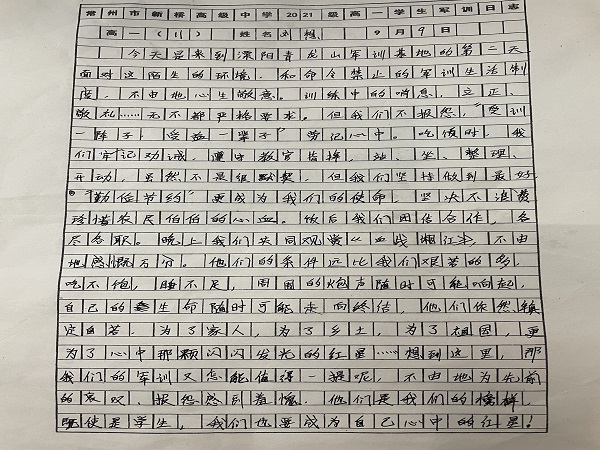 常州市新桥高级中学2021级高一学生军训日志
高一(11) 姓名刘想 9月9日
今天是来到溧阳青龙山军训基地的第二天，
面对这陌生的环境，和命令禁止的军训生活制
度，不由地心生敬意。训练中的哨息，立正、
敬礼……无不都严格要求。但我们不报怨，“受训
一阵子，受益一辈子”劳记心中。吃饭时，我
们牢记劝诫，遵守教官指挥，站、坐、整理、
开动，虽然不是很默契，但我们坚持做到最好
。“勤俭节约”更成为我们的使命，坚决不浪费
珍惜农民伯伯的心血。饭后我们团结合作，各
尽各职。晚上我们共同观赏《血战湘江》，不由
地感慨万分。他们的条件远比我们艰苦的多，
吃不饱，睡不足，周围的炮声随时可能响起，
自己的生命随时可能走向终结，他们依然镇
定自若。为了家人，为了乡土，为了祖国，更
为了心中那颗闪闪发光的红星……想到这里，那
我们的军训又怎能值得一提呢，不由地为先前
的哀叹、报怨感到羞愧。他们是我们的榜样，
既使是学生，我们也要成为自己心中的红星！